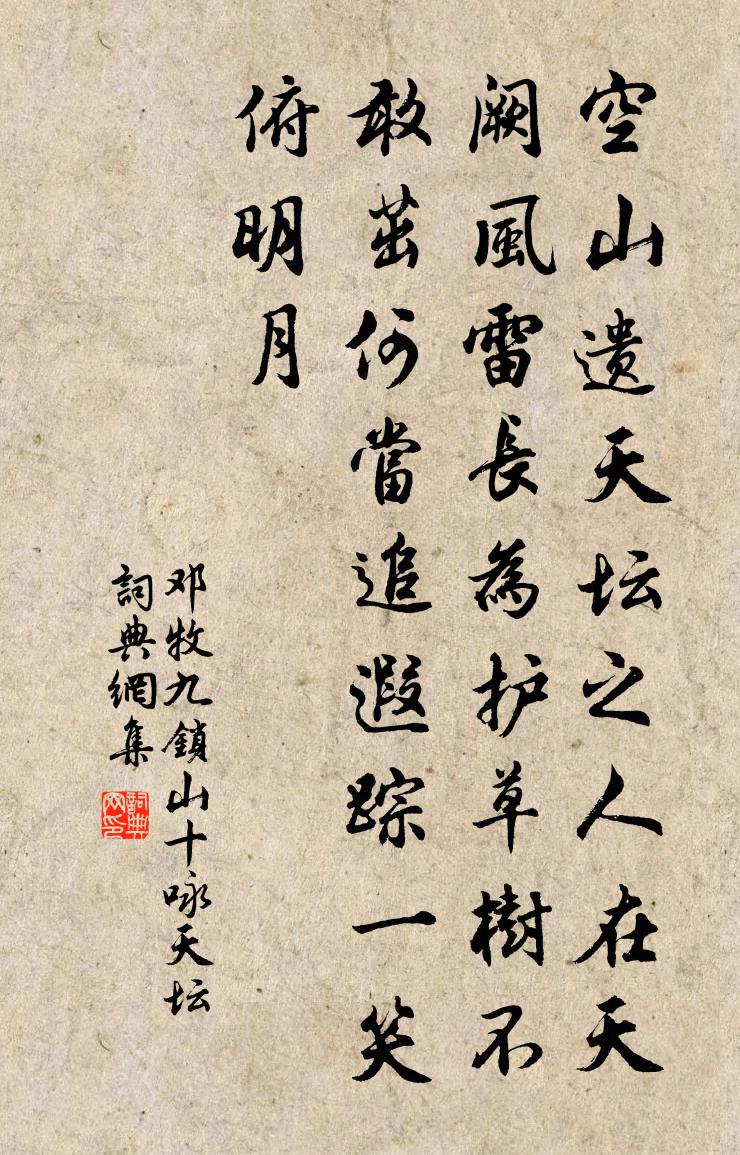 空山遗天坛之人在天
阙風雷長為护草樹不
敢茁何當追遐踪一笑
俯明月
邓牧九鎖山十咏天坛
詞典網集
詞典网印